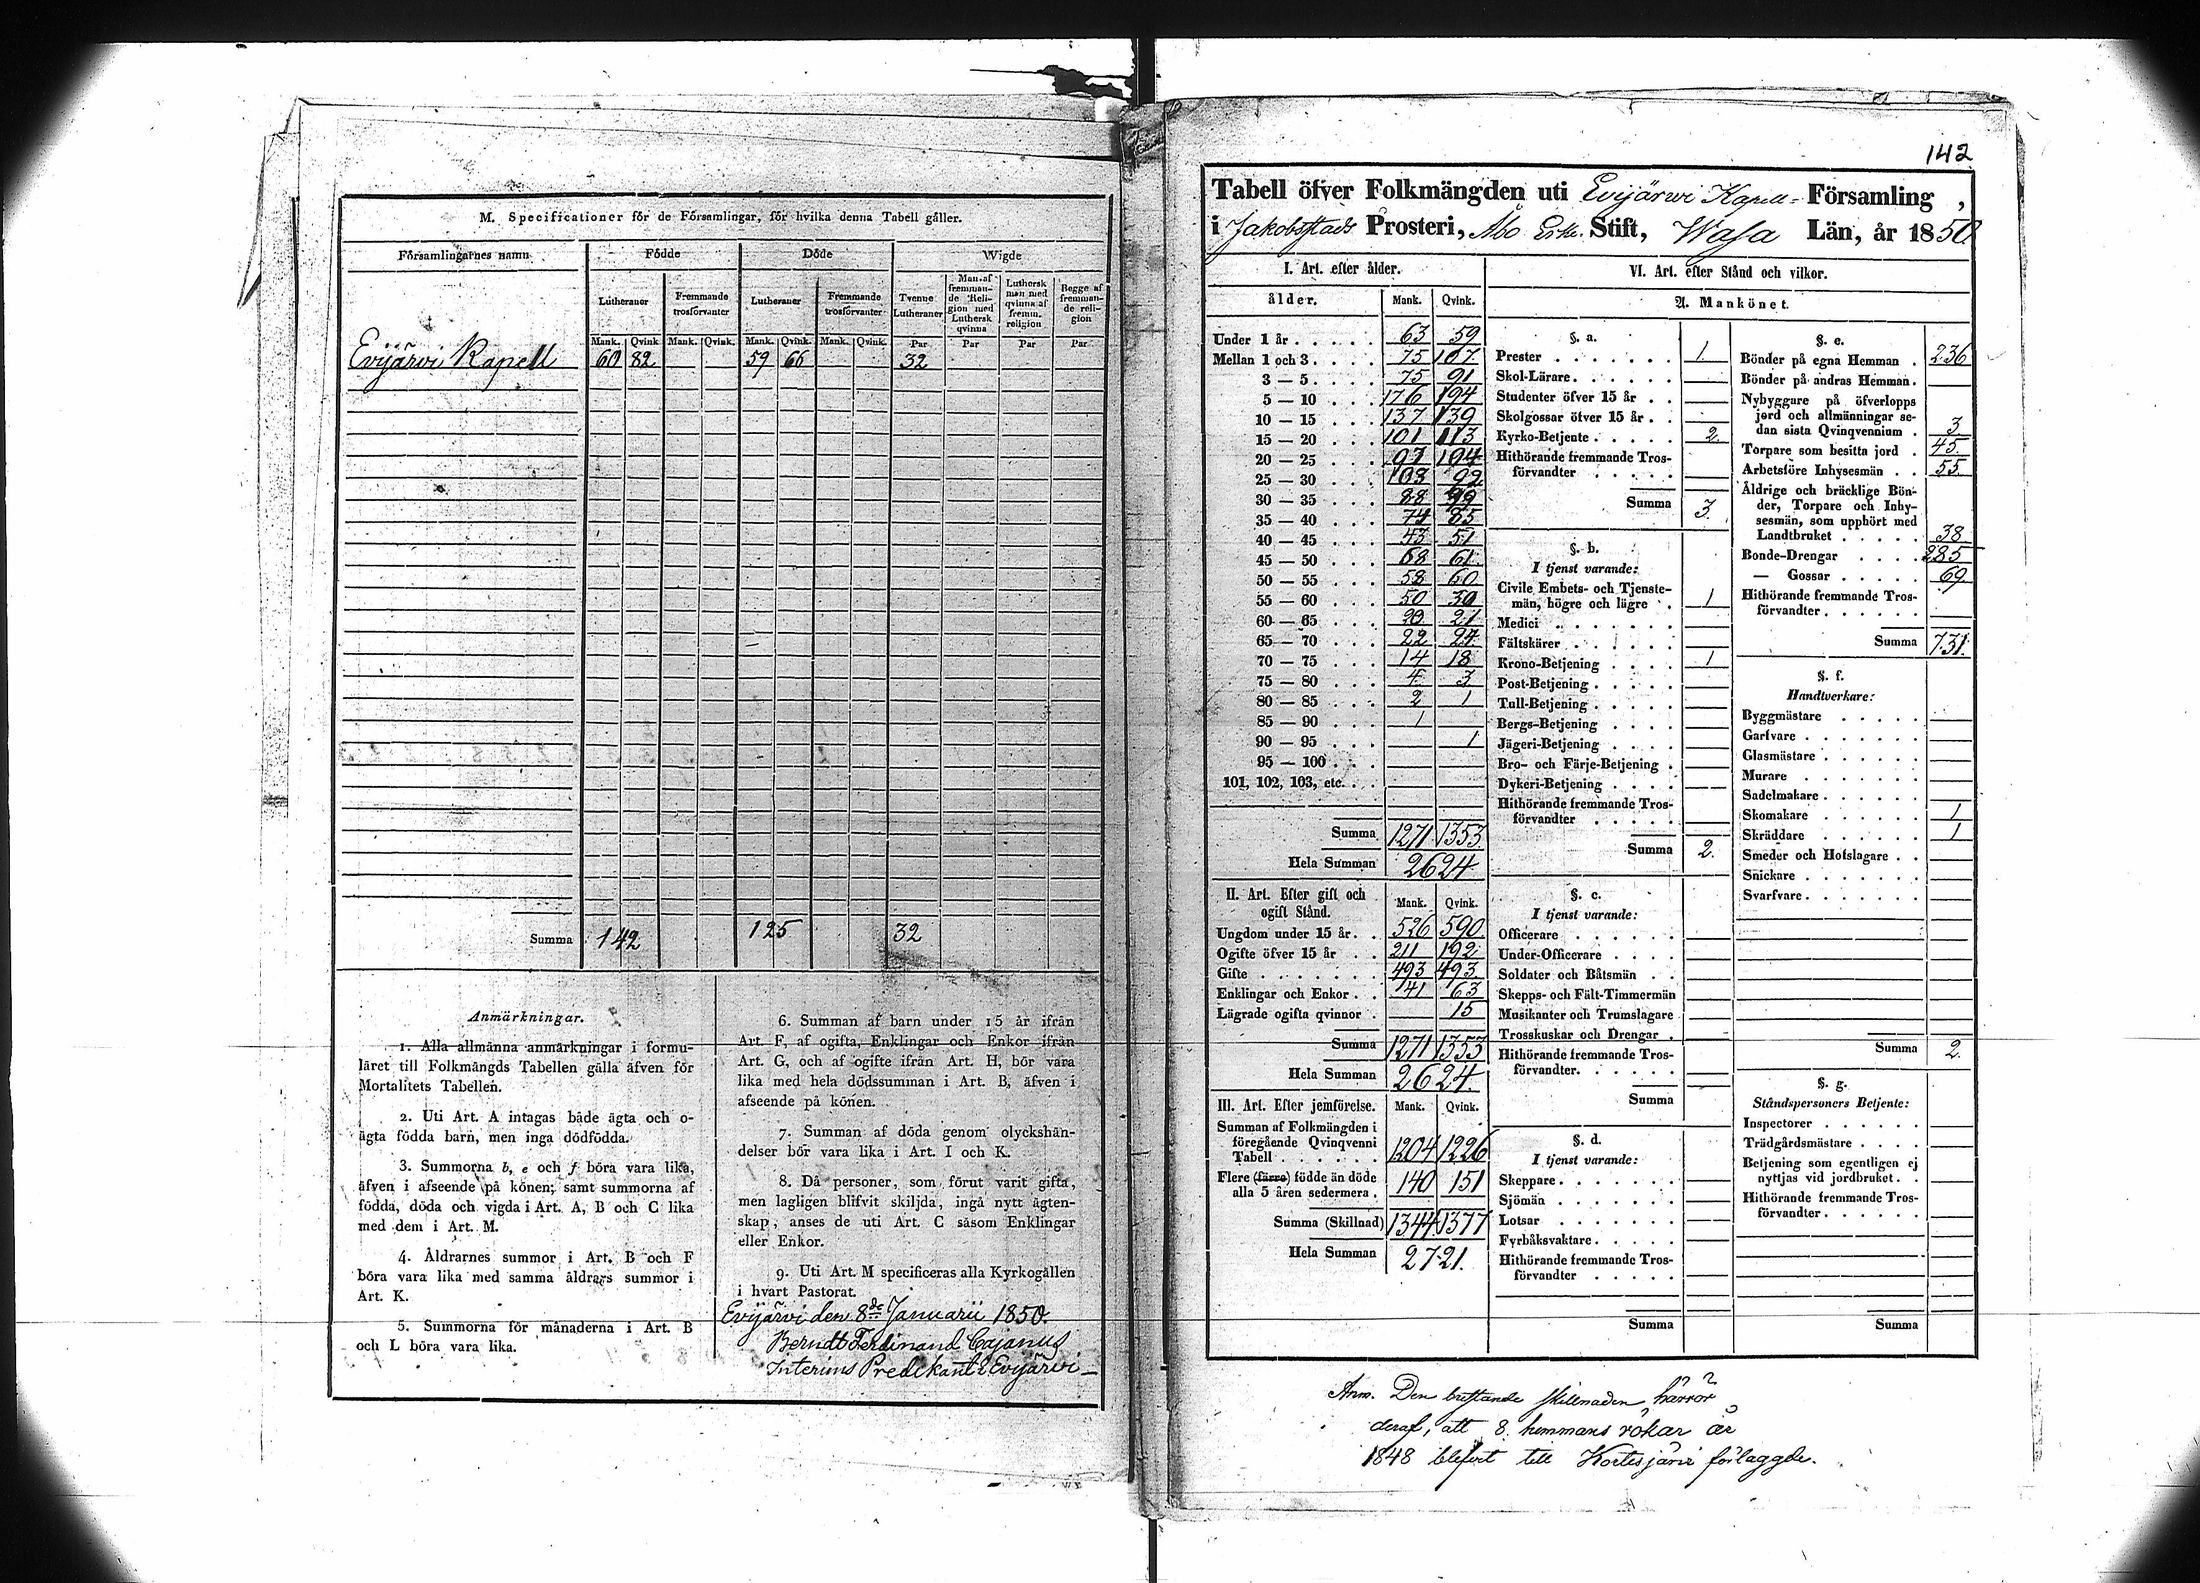 M. Specificationer för de Församlingar, för hvilka denna Tabell gäller.
Församlingarnes namn
Födde
Döde
Wigde
Lutheraner
Fremmande trosförvanter
Lutheraner
Fremmande trosförvanter
Tvenne Lutheraner
Man af fremmande Religion med Luthersk qvinna
Luthersk man med qvinna af fremm. religion
Begge af fremmande religion
Mank. Qvink. Mank. Qvink. Mank. Qvink. Mank. Qvink. Par Par Par Par
Evijärvi Kapell 60 82 59 66 32
Summa 142 125 32
Anmärkningar.
1. Alla allmänna anmärkningar i formu-
läret till Folkmängds Tabellen gälla äfven för
Mortalitets Tabellen.
2. Uti Art. A intagas både ägta och o-
ägta födda barn, men inga dödfödda.
3. Summorna b, e och f böra vara lika,
äfven i afseende på könen; samt summorna af
födda, döda och vigda i Art. A, B och C lika
med dem i Art. M.
4. Åldrarnes summor i Art. B och F
böra vara lika med samma åldrars summor i
Art. K.
5. Summorna för månaderna i Art. B
och L böra vara lika.
6. Summan af barn under 15 år ifrån
Art. F, af ogifta, Enklingar och Enkor ifrån
Art. G, och af ogifte ifrån Art. H, bör vara
lika med hela dödssumman i Art. B, äfven i
afseende på könen.
7. Summan af döda genom olyckshän-
delser bör vara lika i Art. I och K.
8. Då personer, som förut varit gifta,
men lagligen blifvit skiljda, ingå nytt ägten-
skap, anses de uti Art. C såsom Enklingar
eller Enkor.
9. Uti Art. M specificeras alla Kyrkogällen
i hvart Pastorat.
Evijärvi den 8de Januarii 1850.
Berndt Ferdinand Cajanus
Interims Predikant i Evijärvi
142
Tabell öfver Folkmängden uti Evijärwi Kapell- Församling,
i Jakobstads Prosteri, Åbo Erke Stift, Wasa Län, år 1850.
I. Art. efter ålder.
ålder. Mank. Qvink.
Under 1 år 63 59
Mellan 1 och 3 75 107
3 — 5 75 91
5 — 10 176 194
10 — 15 137 139
15 — 20 101 113
20 — 25 97 104
25 — 30 103 92
30 — 35 88
35 — 40 74 85
40 — 45 43 51
45 — 50 68 61
50 — 55 58 60
55 — 60 50 30
60 — 65 21
65 — 70 22 24
70 — 75 14 18
75 — 80 4 3
80 — 85 2 1
85 — 90 1
90 — 95 1
95 — 100
101, 102, 103, etc.
Summa 1271 1353
Hela Summan 2624
II. Art. Efter gift och ogift Stånd. Mank. Qvink.
Ungdom under 15 år 526 590
Ogifte öfver 15 år 211 192
Gifte 493 493
Enklingar och Enkor 41 63
Lägrade ogifta qvinnor 15
Summa 1271 1353
Hela Summan 2624.
III. Art. Efter jemförelse. Mank. Qvink.
Summan af Folkmängden i
föregående Qvinqvenni
Tabell 1204 1226
Flere (färre) födde än döde
alla 5 åren sedermera 140 151
Summa (Skillnad) 1344 1377
Hela Summan 2721.
VI. Art. efter Stånd och vilkor.
A. Mankönet.
§. a.
Prester 1
Skol-Lärare
Studenter öfver 15 år
Skolgossar öfver 15 år
Kyrko-Betjente 2
Hithörande fremmande Tros-
förvandter
Summa 3.
§. b.
I tjenst varande:
Civile Embets- och Tjenste-
män, högre och lägre 1
Medici
Fältskärer
Krono-Betjening 1
Post-Betjening
Tull-Betjening
Bergs-Betjening
Jägeri-Betjening
Bro- och Färje-Betjening
Dykeri-Betjening
Hithörande fremmande Tros-
förvandter
Summa 2.
§. c.
I tjenst varande:
Officerare
Under-Officerare
Soldater och Båtsmän
Skepps- och Fält-Timmermän
Musikanter och Trumslagare
Trosskuskar och Drengar
Hithörande fremmande Tros-
förvandter.
Summa
§. d.
I tjenst varande:
Skeppare
Sjömän
Lotsar
Fyrbåksvaktare
Hithörande fremmande Tros-
förvandter
Summa
§. e.
Bönder på egna Hemman 236
Bönder på andras Hemman
Nybyggare på öfverlopps
jord och allmänningar se-
dan sista Qvinqvennium 3
Torpare som besitta jord 45
Arbetsföre Inhysesmän 55
Åldrige och bräcklige Bön-
der, Torpare och Inhy-
sesmän, som upphört med
Landtbruket 38
Bonde-Drengar 285
— Gossar 69
Hithörande fremmande Tros-
förvandter
Summa 731.
§. f.
Handtverkare:
Byggmästare
Garfvare
Glasmästare
Murare
Sadelmakare
Skomakare 1
Skräddare 1
Smeder och Hofslagare
Snickare
Svarfvare
Summa 2.
§. g.
Ståndspersoners Betjente:
Inspectorer
Trädgårdsmästare
Betjening som egentligen ej
nyttjas vid jordbruket
Hithörande fremmande Tros-
förvandter
Summa
Anm. Den bristande skillnaden härrör
deraf, att 8 hemmans rökar år
1848 blifvit till Kortesjärvi förlaggde.